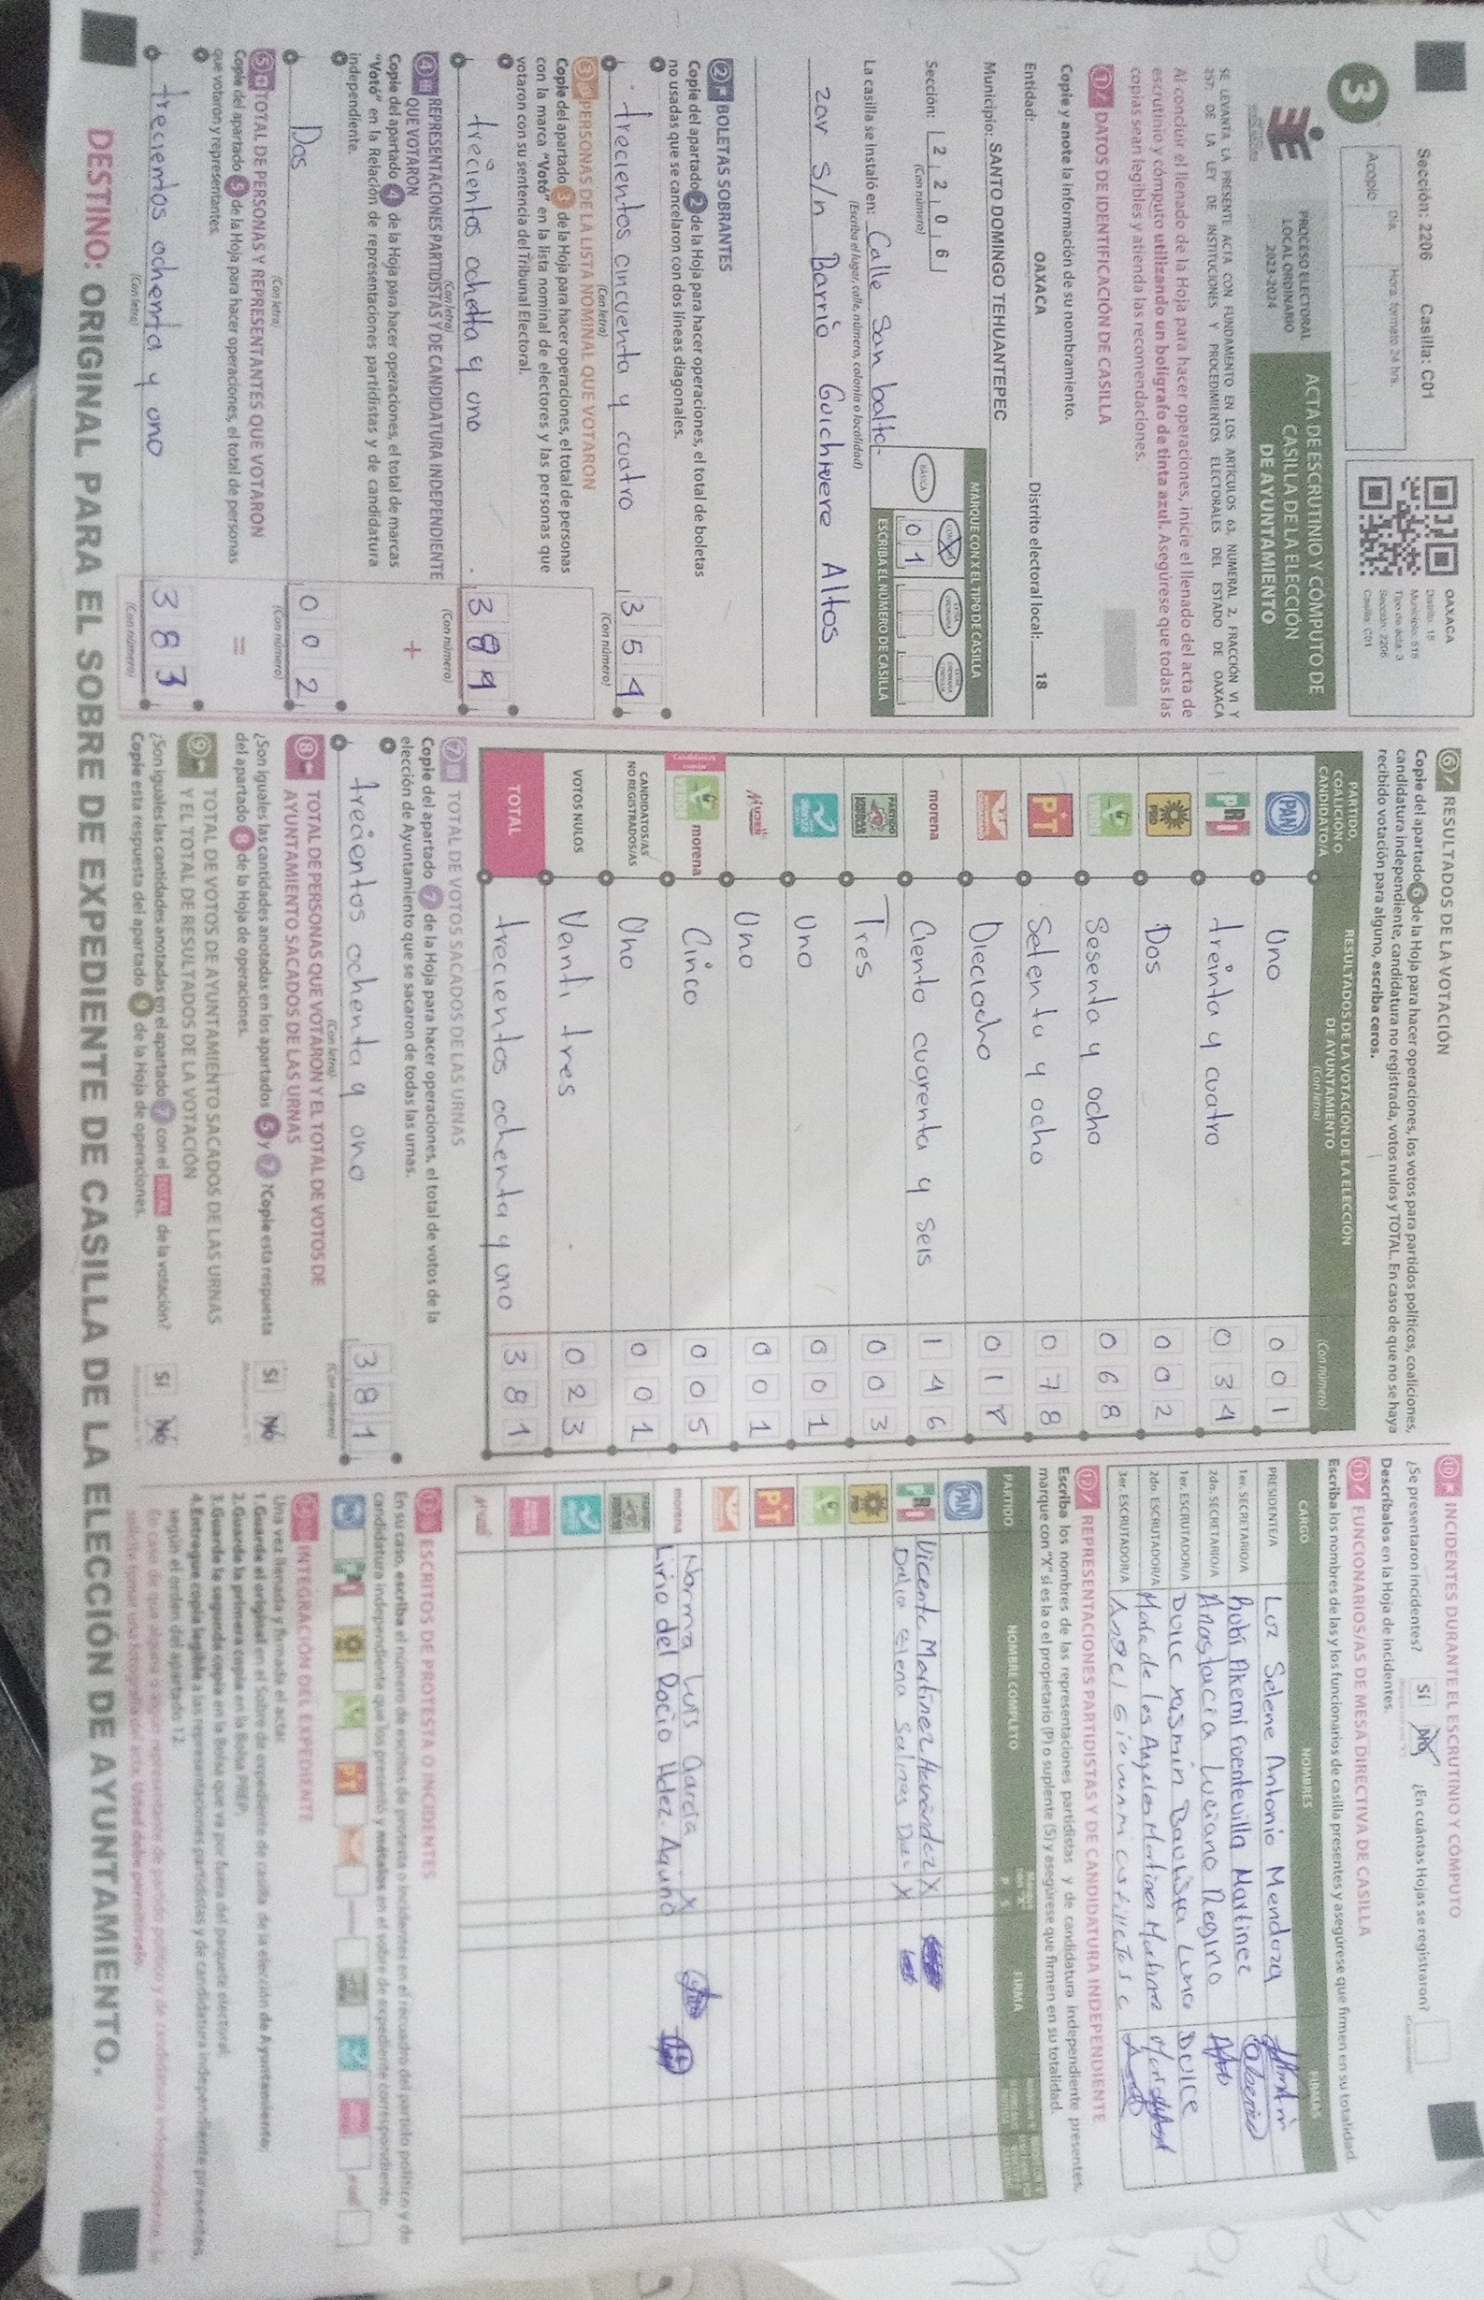 Sección: 2206 Casilla: C01
3
Día Hora: formato 24 hrs.
Acopio
OAXACA
Distrito: 18
Municipio: 515
Tipo de acta: 3
Sección: 2206
Casilla: C01
PROCESO ELECTORAL
LOCAL ORDINARIO
2023-2024
ACTA DE ESCRUTINIO Y CÓMPUTO DE
CASILLA DE LA ELECCIÓN
DE AYUNTAMIENTO
SE LEVANTA LA PRESENTE ACTA CON FUNDAMENTO EN LOS ARTÍCULOS 63, NUMERAL 2, FRACCIÓN VI Y
257; DE LA LEY DE INSTITUCIONES Y PROCEDIMIENTOS ELECTORALES DEL ESTADO DE OAXACA
Al concluir el llenado de la Hoja para hacer operaciones, inicie el llenado del acta de
escrutinio y cómputo utilizando un bolígrafo de tinta azul. Asegúrese que todas las
copias sean legibles y atienda las recomendaciones.
1 DATOS DE IDENTIFICACIÓN DE CASILLA
Copie y anote la información de su nombramiento.
Entidad: OAXACA Distrito electoral local: 18
Municipio: SANTO DOMINGO TEHUANTEPEC
Sección: 2 2 0 6
(Con número)
MARQUE CON X EL TIPO DE CASILLA
BÁSICA
0 1
ESCRIBA EL NÚMERO DE CASILLA
La casilla se instaló en: Calle San balta-
(Escriba el lugar, calle, número, colonia o localidad)
zar s/n Barrio Guichivere Altos
2 BOLETAS SOBRANTES
Copie del apartado 2 de la Hoja para hacer operaciones, el total de boletas
no usadas que se cancelaron con dos líneas diagonales.
trecientos cincuenta y cuatro 3 5 4
(Con letra) (Con número)
3 PERSONAS DE LA LISTA NOMINAL QUE VOTARON
Copie del apartado 3 de la Hoja para hacer operaciones, el total de personas
con la marca "Votó" en la lista nominal de electores y las personas que
votaron con su sentencia del Tribunal Electoral.
trecientos ochetta y uno 3
(Con letra) (Con número)
4 REPRESENTACIONES PARTIDISTAS Y DE CANDIDATURA INDEPENDIENTE
QUE VOTARON
Copie del apartado 4 de la Hoja para hacer operaciones, el total de marcas
"Votó" en la Relación de representaciones partidistas y de candidatura
independiente.
+
Dos 0 0 2
(Con letra) (Con número)
5 TOTAL DE PERSONAS Y REPRESENTANTES QUE VOTARON
Copie del apartado 5 de la Hoja para hacer operaciones, el total de personas
que votaron y representantes.
=
trecientos ochenta y uno 3 8 3
(Con letra) (Con número)
6 RESULTADOS DE LA VOTACIÓN
Copie del apartado 6 de la Hoja para hacer operaciones, los votos para partidos políticos, coaliciones,
candidatura independiente, candidatura no registrada, votos nulos y TOTAL. En caso de que no se haya
recibido votación para alguno, escriba ceros.
PARTIDO, COALICIÓN O CANDIDATO/A RESULTADOS DE LA VOTACIÓN DE LA ELECCIÓN DE AYUNTAMIENTO (Con letra) (Con número)
PAN Uno 0 0 1
PRI treinta y cuatro 0 3 4
PRD Dos 0 0 2
VERDE Sesenta y ocho 0 6 8
PT Setenta y ocho 0 7 8
Dieciocho 0 1 8
morena Ciento cuarenta y seis 1 4 6
PARTIDO UNIDAD POPULAR Tres 0 0 3
Uno 0 0 1
MUJER Uno 0 0 1
VERDE morena Cinco 0 0 5
CANDIDATOS/AS NO REGISTRADOS/AS Uno 0 0 1
VOTOS NULOS Veinti tres 0 2 3
TOTAL trecientos ochenta y uno 3 8 1
7 TOTAL DE VOTOS SACADOS DE LAS URNAS
Copie del apartado 7 de la Hoja para hacer operaciones, el total de votos de la
elección de Ayuntamiento que se sacaron de todas las urnas.
trecientos ochenta y uno 3 8 1
(Con letra) (Con número)
8 TOTAL DE PERSONAS QUE VOTARON Y EL TOTAL DE VOTOS DE
AYUNTAMIENTO SACADOS DE LAS URNAS
¿Son iguales las cantidades anotadas en los apartados 5 y 7? Copie esta respuesta
del apartado 8 de la Hoja de operaciones.
Sí No
9 TOTAL DE VOTOS DE AYUNTAMIENTO SACADOS DE LAS URNAS
Y EL TOTAL DE RESULTADOS DE LA VOTACIÓN
¿Son iguales las cantidades anotadas en el apartado 7 con el TOTAL de la votación?
Copie esta respuesta del apartado 9 de la Hoja de operaciones.
Sí No
10 INCIDENTES DURANTE EL ESCRUTINIO Y CÓMPUTO
¿Se presentaron incidentes? Sí No ¿En cuántas Hojas se registraron?
Descríbalos en la Hoja de incidentes.
11 FUNCIONARIOS/AS DE MESA DIRECTIVA DE CASILLA
Escriba los nombres de las y los funcionarios de casilla presentes y asegúrese que firmen en su totalidad.
CARGO NOMBRES FIRMAS
PRESIDENTE/A Luz Selene Antonio Mendoza
1er. SECRETARIO/A Rubí Akemi Fuentevilla Martinez
2do. SECRETARIO/A Anastacia Luciano Regino
1er. ESCRUTADOR/A Dulce Yasmin Bautista Luna DULCE
2do. ESCRUTADOR/A María de los Angeles Martinez Martinez
3er. ESCRUTADOR/A Angel Giovanni
12 REPRESENTACIONES PARTIDISTAS Y DE CANDIDATURA INDEPENDIENTE
Escriba los nombres de las representaciones partidistas y de candidatura independiente presentes,
marque con "X" si es la o el propietario (P) o suplente (S) y asegúrese que firmen en su totalidad.
PARTIDO NOMBRE COMPLETO P S FIRMA
PAN
PRI Vicente Martinez Hernández X
Delia Elena Salinas X
PRD
VERDE
PT
morena Norma Luis García X
Lirio del Rocio Hdez. Aquino
13 ESCRITOS DE PROTESTA O INCIDENTES
En su caso, escriba el número de escritos de protesta o incidentes en el recuadro del partido político y de
candidatura independiente que los presentó y métalos en el sobre de expediente correspondiente.
14 INTEGRACIÓN DEL EXPEDIENTE
Una vez llenada y firmada el acta:
1.Guarde el original en el Sobre de expediente de casilla de la elección de Ayuntamiento;
2.Guarde la primera copia en la Bolsa PREP;
3.Guarde la segunda copia en la bolsa que va por fuera del paquete electoral;
4.Entregue copia legible a las representaciones partidistas y de candidatura independiente presentes,
según el orden del apartado 12.
DESTINO: ORIGINAL PARA EL SOBRE DE EXPEDIENTE DE CASILLA DE LA ELECCIÓN DE AYUNTAMIENTO.